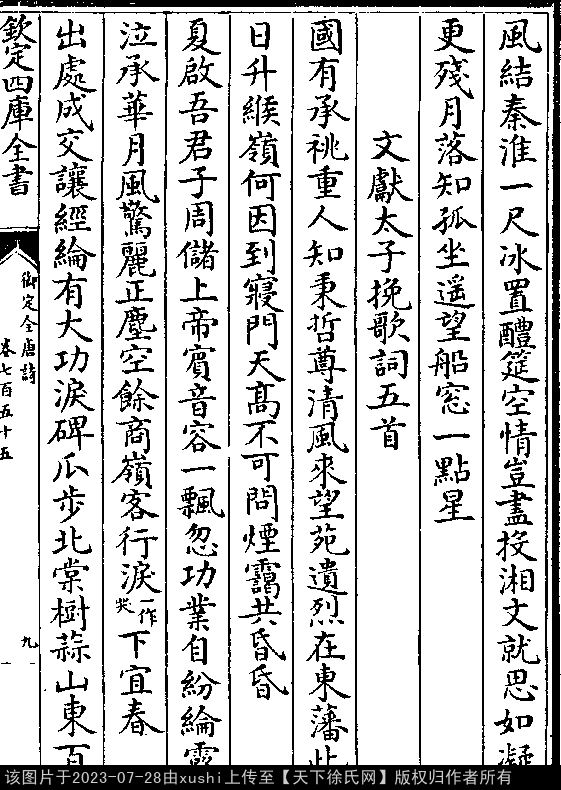 風結秦淮一尺冰置醴筵空情豈盡投湘文就思如凝
更殘月落知孤坐遥望船窓一點星
文獻太子挽歌詞五首
國有承祧重人知秉哲尊清風來望苑遺烈在東藩此
日升緱嶺何因到寢門天髙不可問煙靄共昏昏
夏啟吾君子周儲上帝賓音容一飄忽功業自紛綸露
泣承華月風驚麗正塵空餘商嶺客行淚一作哭下宜春
出處成交讓經綸有大功淚碑瓜步北棠樹蒜山東百
欽定四庫全書
御定全唐詩
卷七百五十五
九
该图片于2023-07-28由xushi上传至【天下徐氏网】版权归作者所有